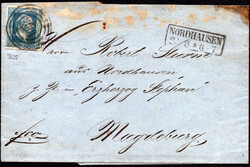 NORDHAUSEN
6-7
Herrn Robert Sturm
aus Nordhausen
z. Z. Erzherzog Stephan
fro
Magdeburg